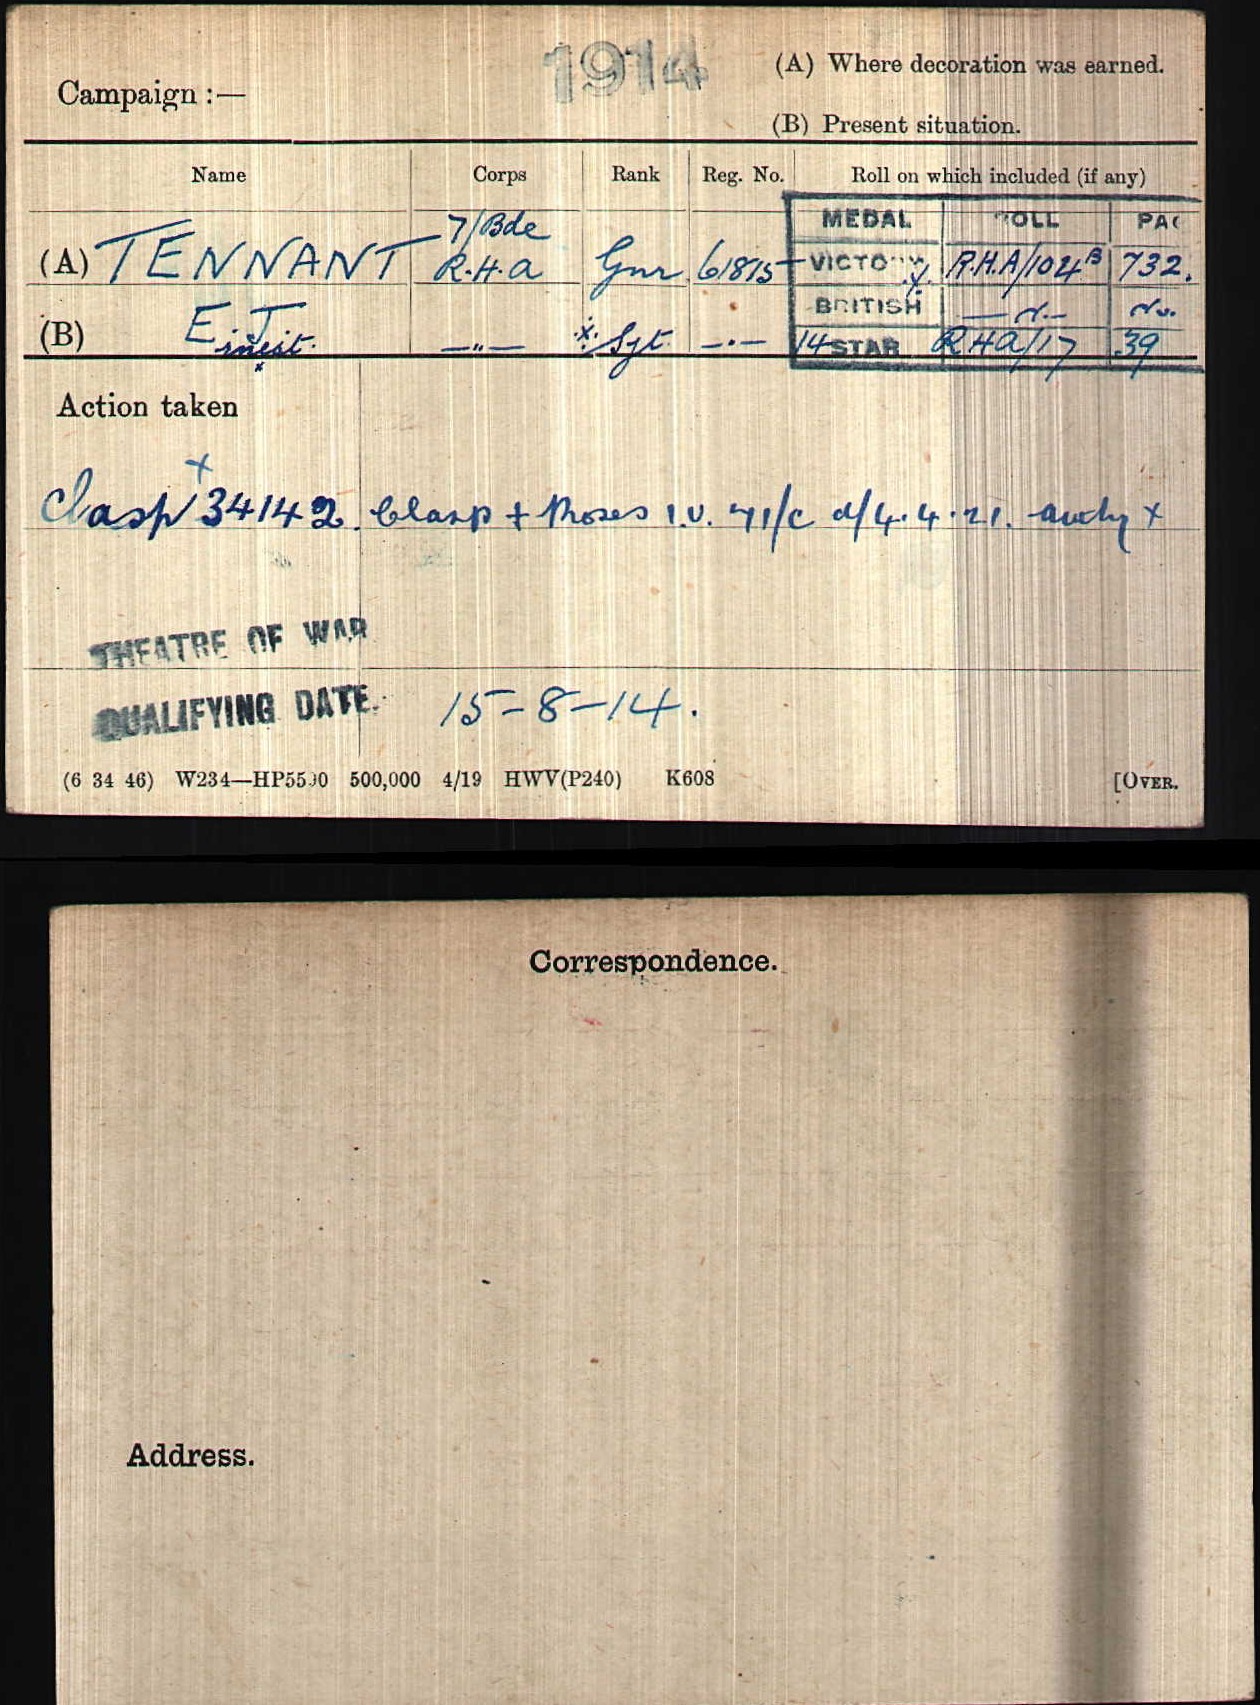 1914
(A) Where decoration was earned.
Campaign :—
(B) Present situation.
Name Corps Rank Reg. No. Roll on which included (if any)
MEDAL ROLL PAG
7/Bde
(A) TENNANT R.H.A Gnr 61875 VICTORY R.H.A/104B 732.
BRITISH — do — do.
(B) E. J. — " — Sgt. — " — 14 STAR RHA/17 39
Ernest.
Action taken
Clasp 34142. Clasp + Roses I.V. 71/c d/4.4.21. auth x
THEATRE OF WAR
QUALIFYING DATE. 15-8-14.
(6 34 46) W234—HP5590 500,000 4/19 HWV(P240) K608 [OVER.
Correspondence.
Address.